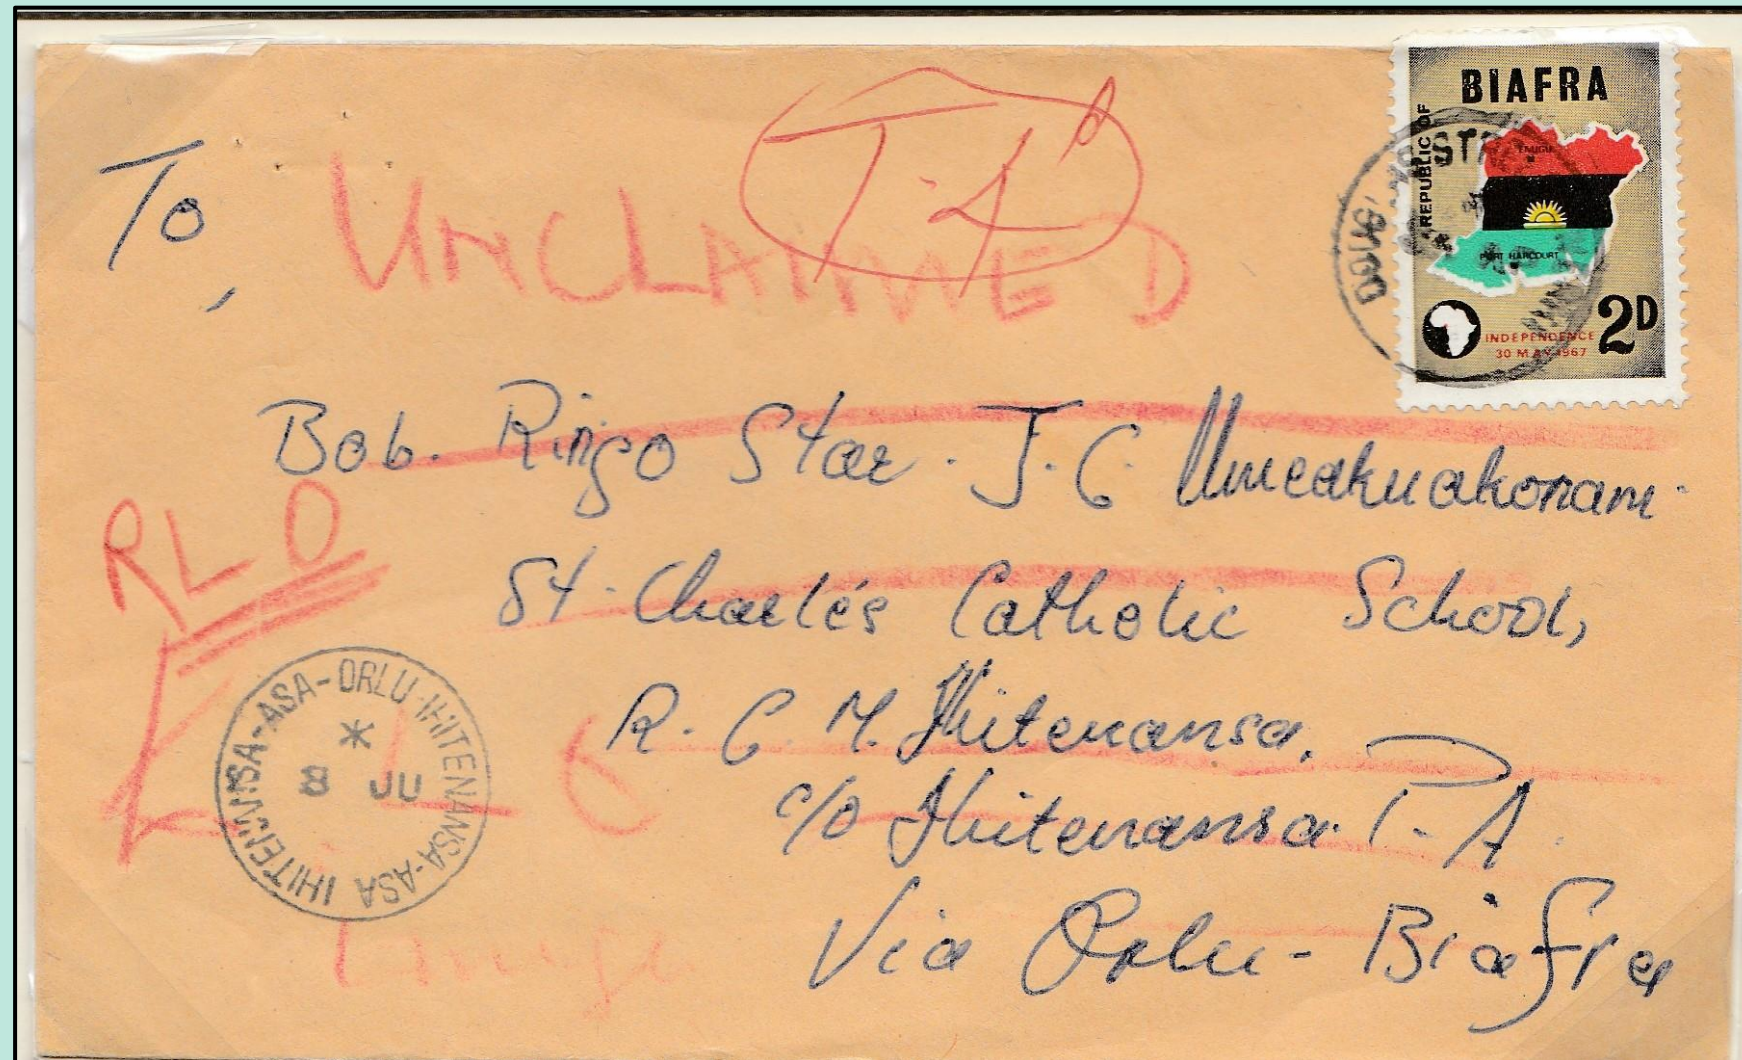 BIAFRA
REPUBLIC OF
ENUGU
PORT HARCOURT
INDEPENDENCE
30 MAY 1967
2D
To,
UNCLAIMED
Bob. Ringo Star. J.C. Umeakuakonam
St. Charlés Catholic School,
R.C.M. Ihitenansa.
c/o Ihitenansa P.A.
Via Orlu - Biafra
RLO
IHITENANSA-ASA-ORLU-IHITENANSA-ASA
8 JU